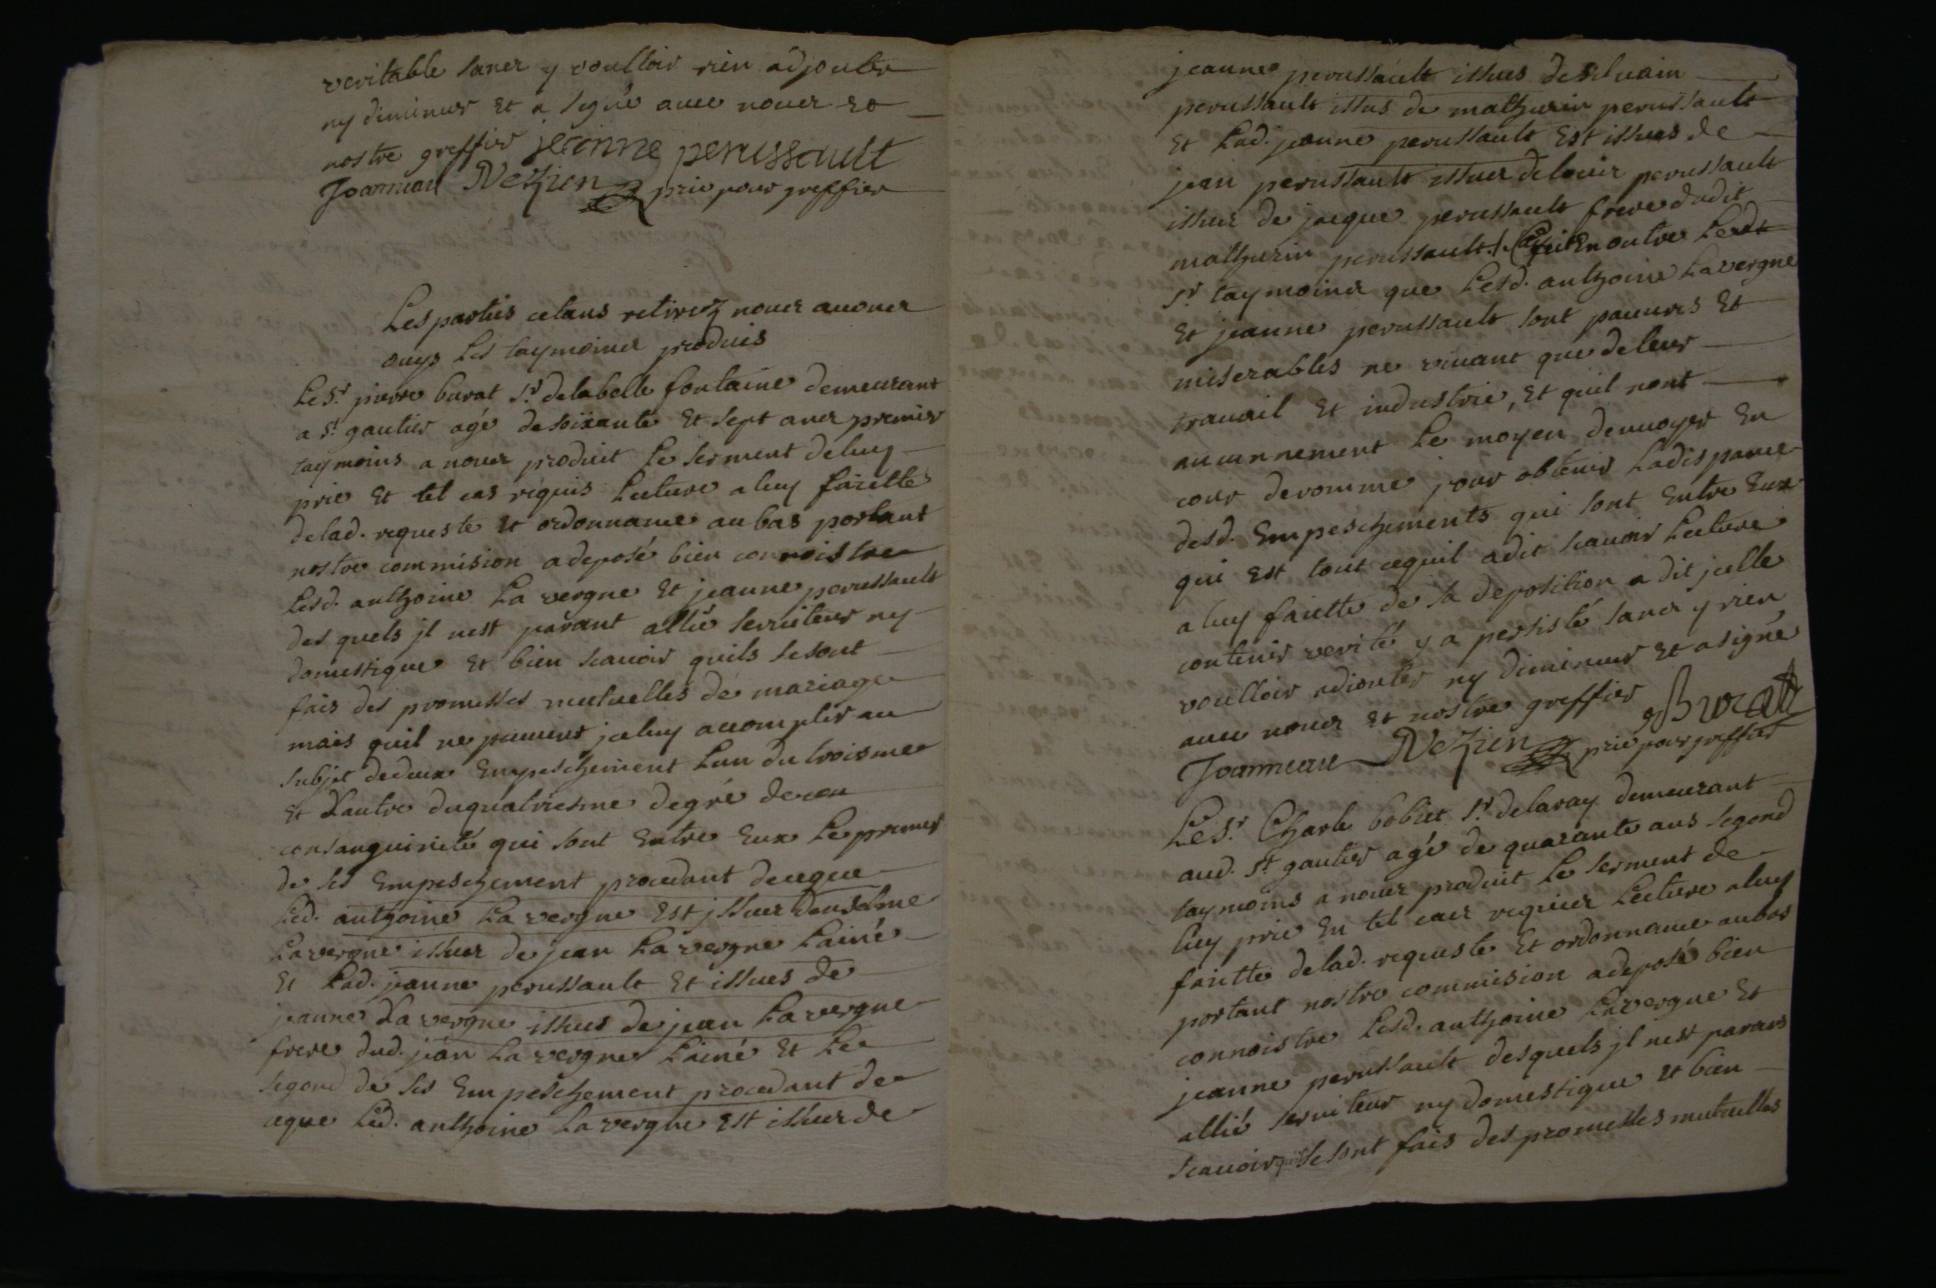 veritable sanez y voulloir rien adjouter
ny diminuer Et a signé avec nouez Et
nostre greffier jeanne perussault
Joanneau Nezien pris pour greffier
Les parties cetans retirez nouez avonez
ouys Les taymoinez produis
Le Sr. pierre burat Sr. delabelle fontaine demeurant
a St. gautier agé desoixante Et sept anez premier
taymoins a nouez produit Le serment deluy
pris Et tel cas requis Lecture a luy faictte
delad. requeste Et ordonnance au bas portant
nostre commision a deposé bien connoistre
Lesd. anthoine La vergne Et jeanne perussault
des quels jl nest parant allié serviteur ny
domestique Et bien scavoir quils se sont
fais des promesses mutuelles de mariage
mais quil ne peuvent jceluy accomplir au
subjet dedeux Empeschement Lun du troisme
Et Lautre duquatriesme degré de con
consanguinité qui sont Entre Eux Le premier
de ses Empeschement procedant deceque
Led. anthoine La vergne Est jssuez
Lavergne issuez de jean La vergne Lainé
Et Lad. jeanne perussault Et issues de
jeanne La vergne issues de jean La vergne
frere dud. jean La vergne Lainé Et Le
segond de ses Empeschement procedant de
ceque Led. anthoine La vergne Est issuez de
jeanne perussault issues de silvain
perussault issus de mathurin perussault
Et Lad. jeanne perussault Est issues de
jean perussault issuez delouis perussault
issuz de jacque perussault frere dudit
mathurin perussault. En outre Ledt
Sr. taymoinez que Lesd. anthoine Lavergne
Et jeanne perussault sont pauvres Et
miserables ne vivant que deleur
travail Et industrie, Et quil nont
aucunnement Le moyen denvoyer En
cour deromme pour obtenir Ladispance
desd. Empeschements qui sont Entre Eux
qui Est tout cequil adit scavoir Lecture
a luy faictte de sa deposition a dit jcelle
contenir verité y a persisté sanez y rien
voulloir adiouter ny diminuer Et asigné
avec nouez Et nostre greffier Burat
Joanneau Nezien pris pour greffier
Le Sr. Charle boblet Sr. delaray demeurant
aud. St. gautier agé de quarante ans segond
taymoins a nouez produit Le serment de
luy pris En tel caez requiez Lecture aluy
faictte delad. requeste Et ordonnance aubas
portant nostre commision adeposé bien
connoistre Lesd. anthoine Lavergne Et
jeanne perussault desquels jl nest parans
allié serviteur ny domestique Et bien
scavoir quil se sont fais des promesses mutuelles